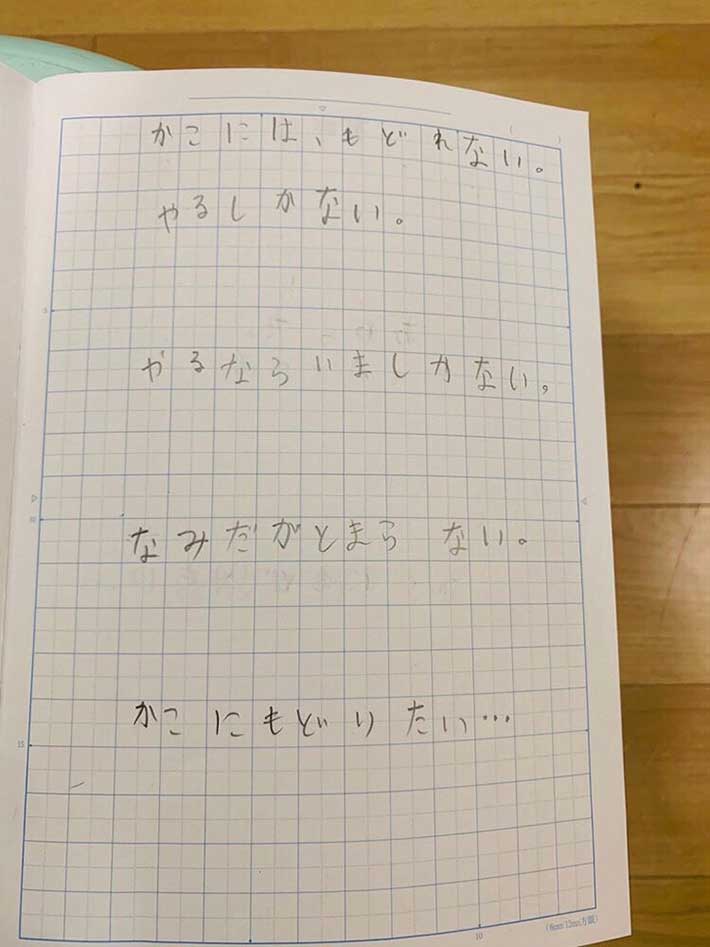 かこには、もどれない。
やるしかない。
やるならいましかない。
なみだがとまらない。
かこにもどりたい…
5
10
15
10
(6mm/12mm方眼)